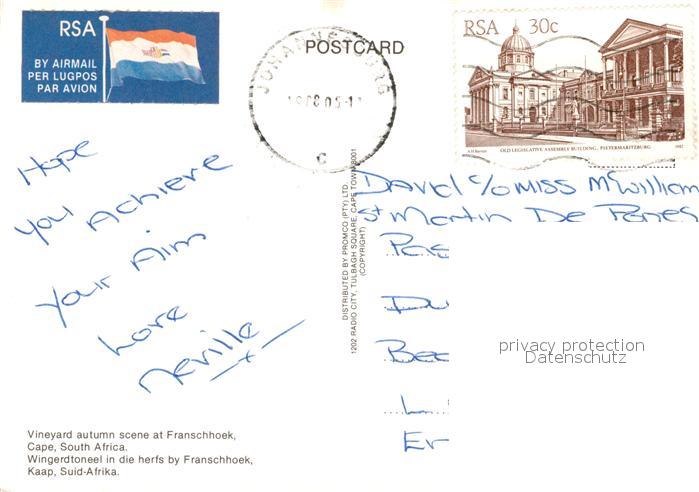 RSA
BY AIRMAIL
PER LUGPOS
PAR AVION
POSTCARD
JOHANNESBURG
C
RSA 30c
A H Barrett
OLD LEGISLATIVE ASSEMBLY BUILDING, PIETERMARITZBURG
1982
Hope
you Achieve
your Aim
Love
Neville
x
DISTRIBUTED BY PROMCO (PTY) LTD.
1202 RADIO CITY, TULBAGH SQUARE, CAPE TOWN 8001
(COPYRIGHT)
David c/o Miss McWilliam
St Martin De Pores
Du
Bee
L
Er
privacy protection
Datenschutz
Vineyard autumn scene at Franschhoek,
Cape, South Africa.
Wingerdtoneel in die herfs by Franschhoek,
Kaap, Suid-Afrika.